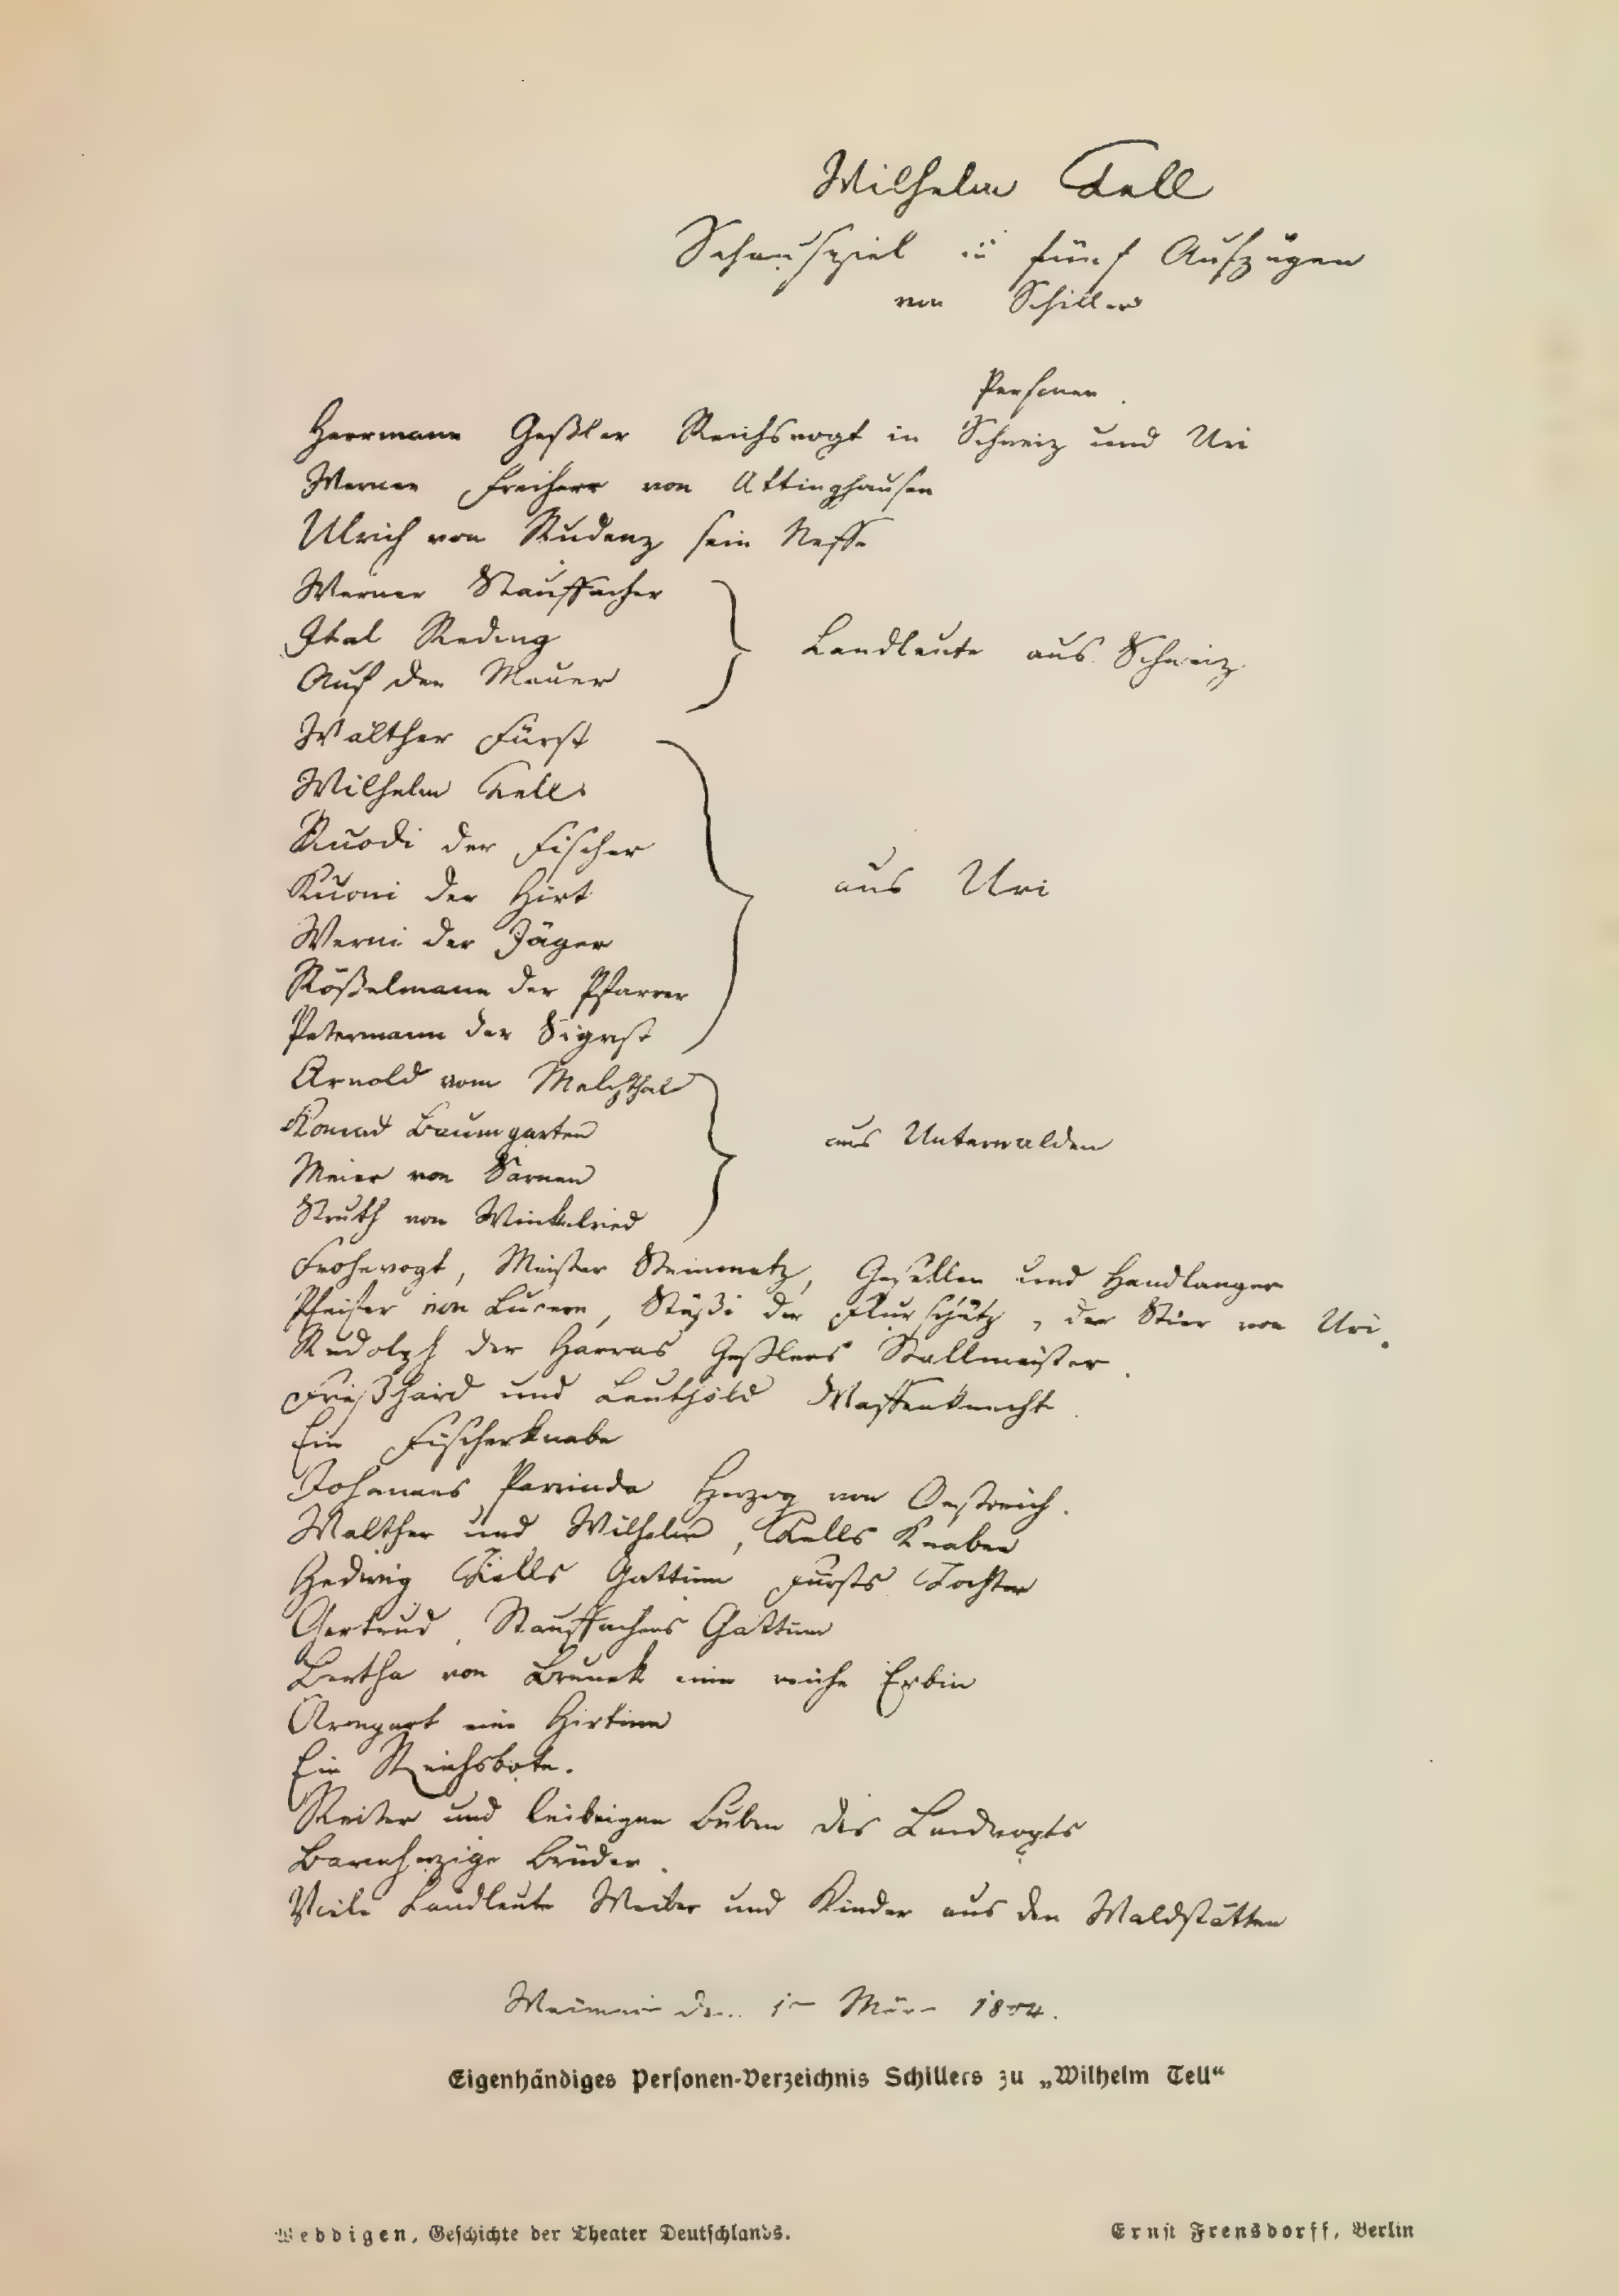 Wilhelm Tell
Schauspiel in fünf Aufzügen
von Schiller
Personen.
Herrmann Geßler Reichsvogt in Schweiz und Uri
Werner Freiherr von Attinghausen
Ulrich von Rudenz sein Neffe
Werner Stauffacher
Ital Reding
Auf der Mauer
Landleute aus Schweiz.
Walther Fürst
Wilhelm Tell
Ruodi der Fischer
Kuoni der Hirt
Werni der Jäger
Rößelmann der Pfarrer
Petermann der Sigrist
aus Uri
Arnold vom Melchthal
Konrad Baumgarten
Meier von Sarnen
Struth von Winkelried
aus Unterwalden
Frohnvogt, Meister Steinmetz, Gesellen und Handlanger
Pfeiffer von Lucern, Stüßi der Flurschütz, der Stier von Uri.
Rudolph der Harras Geßlers Stallmeister.
Frießhard und Leuthold Waffenknechte.
Ein Fischerknabe
Johannes Parricida Herzog von Oestreich.
Walther und Wilhelm, Tells Knaben
Hedwig Tells Gattinn Fürsts Tochter
Gertrud, Stauffachers Gattinn
Bertha von Bruneck eine reiche Erbin
Armgart eine Hirtinn
Ein Reichsbote.
Reiter und leibeigen Buben des Landvogts
Barmherzige Brüder.
Viele Landleute Weiber und Kinder aus den Waldstätten
Weimar den März 1804.
Eigenhändiges Personen-Verzeichnis Schillers zu „Wilhelm Tell“
Weddigen, Geschichte der Theater Deutschlands.
Ernst Frensdorff, Berlin